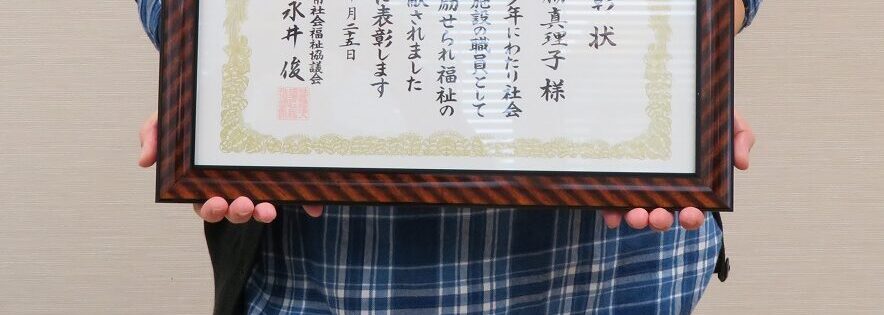 彰状
真理子 様
年にわたり社会
施設の職員として
励せられ福祉の
献されました
に表彰します
月二十五日
社会福祉協議会
永井 俊